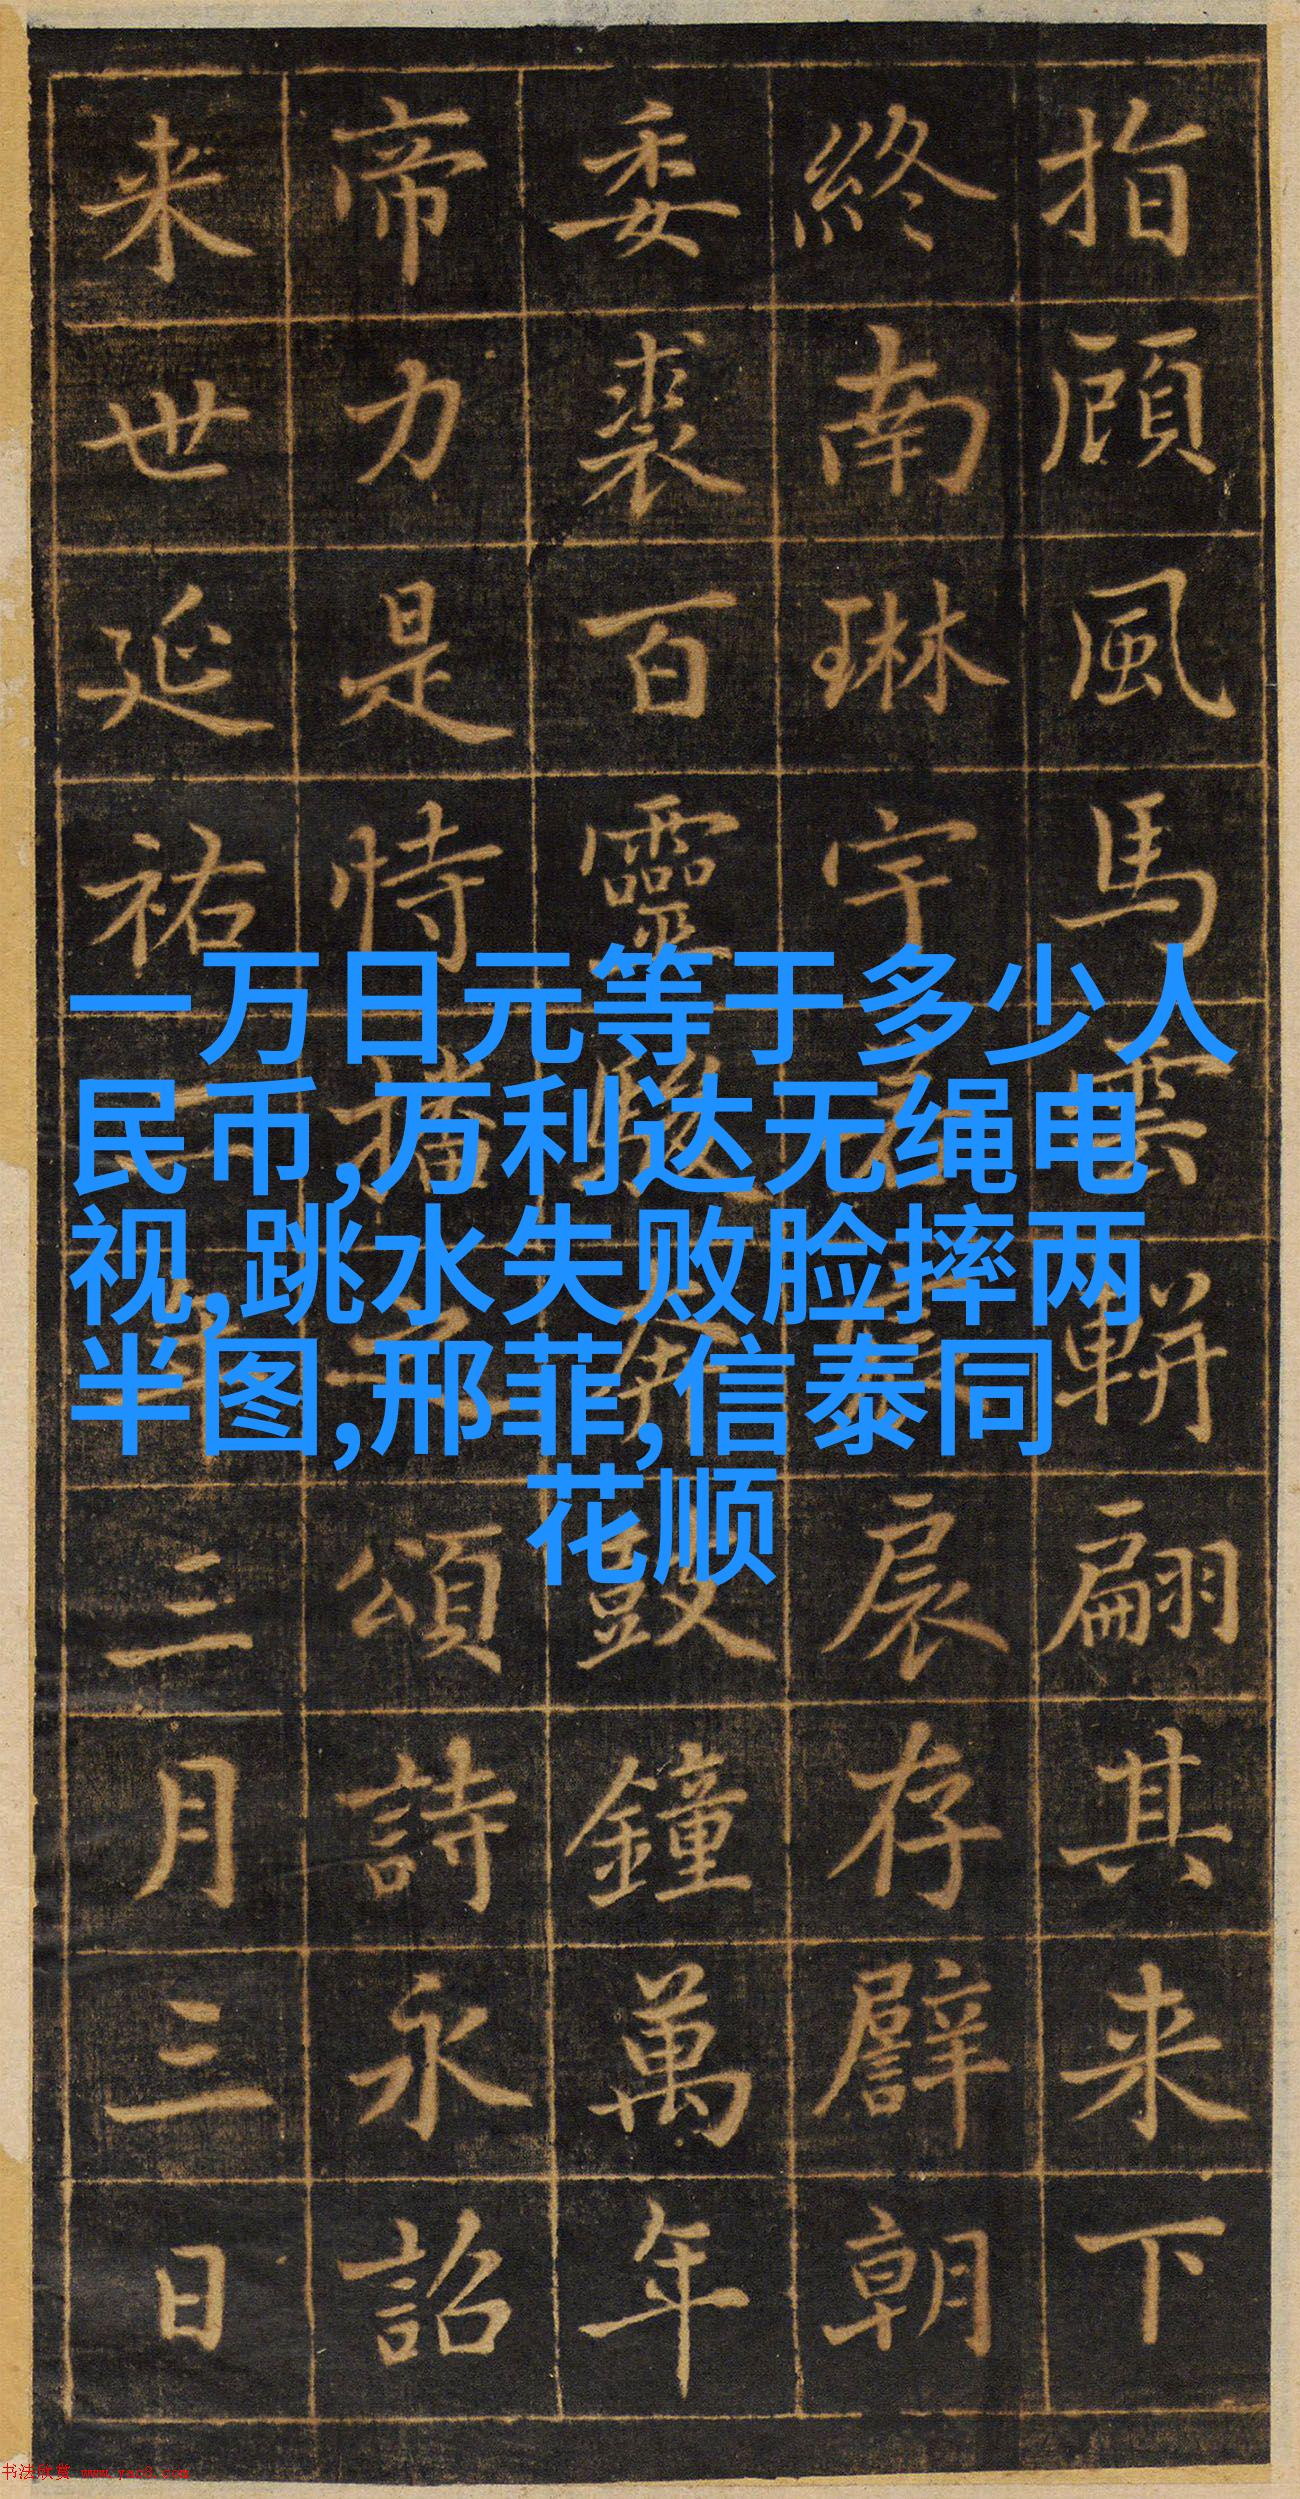 一万日元等于多少人
民币,万利达无绳电
视,跳水失败脸摔两
半图,邢菲,信泰同
花顺
指顧風馬雲軿翩其来下
終南琳宇扆存譬朝
委裘百靈駿奔鼓鐘萬年
帝力是恃播之頌詩永詔
来世延祐二年三月三日
书法欣赏 www.yac8.com